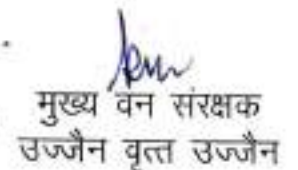 मुख्य वन संरक्षक
उज्जैन वृत्त उज्जैन